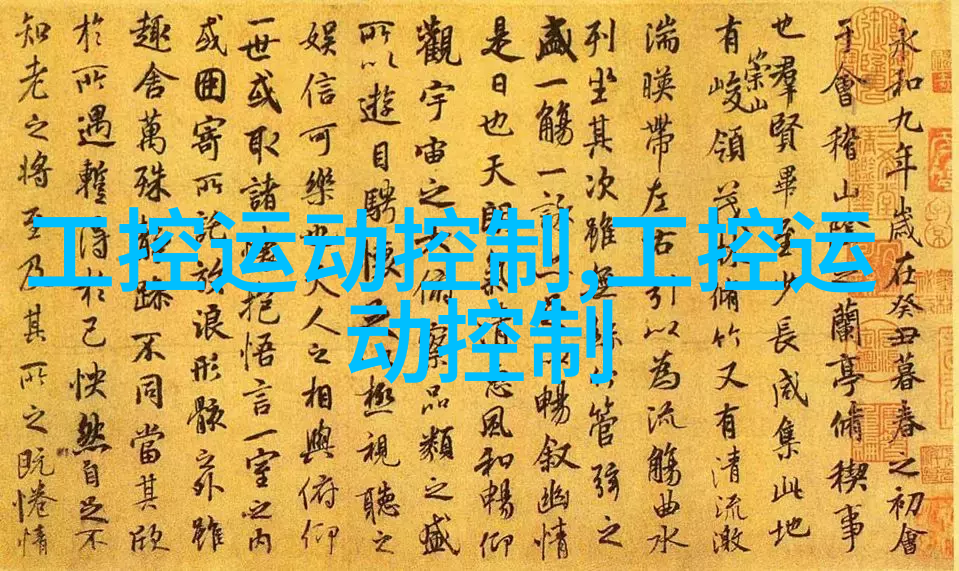 工控运动控制,工控运
动控制
永和九年歲在癸丑暮春之初會
于會稽山陰之蘭亭脩稧事
也羣賢畢至少長咸集此地
有崇山峻領茂林脩竹又有清流激
湍暎帶左右引以為流觴曲水
列坐其次雖無絲竹管弦之
盛一觴一詠暢敘幽情
是日也天朗氣清惠風和暢仰
觀宇宙之大俯察品類之盛
所以遊目騁懷足以極視聽之
娛信可樂也夫人之相與俯仰
一世或取諸懷抱悟言一室之內
或因寄所託放浪形骸之外雖
趣舍萬殊躁不同當其欣
於所遇蹔得於己怏然自足不
知老之將至及其所之既惓情